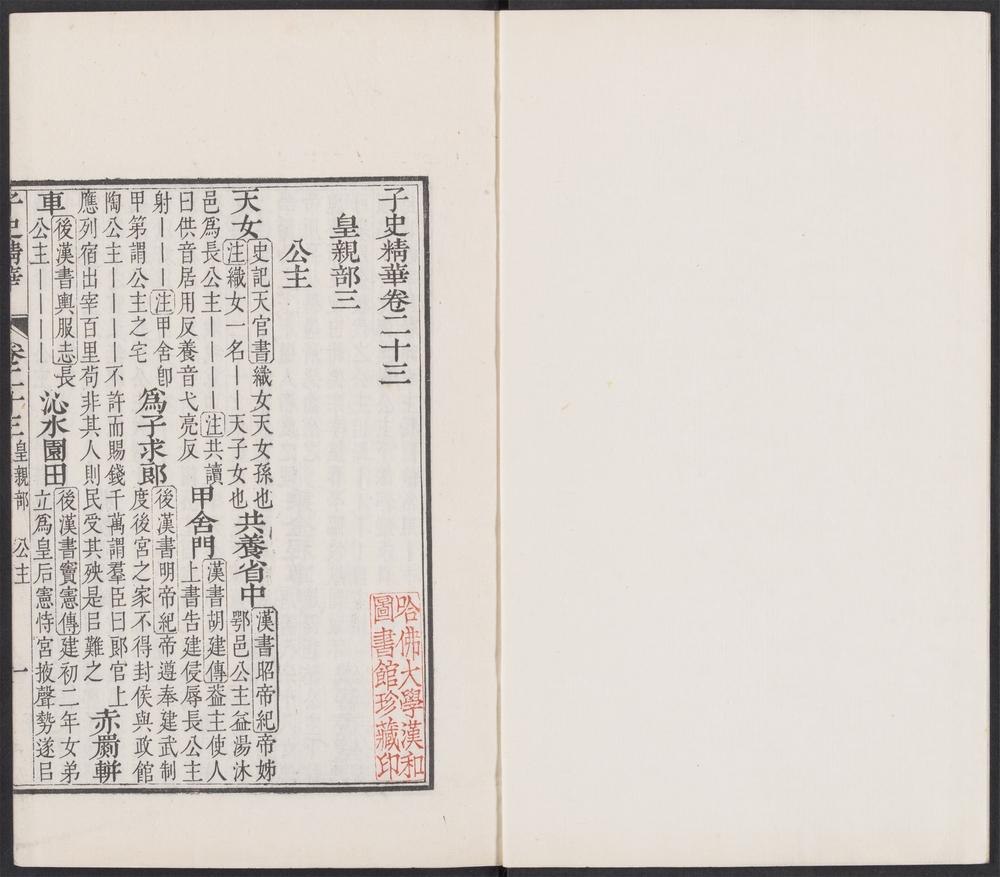 子史精華卷二十三
皇親部三
公主
天女史記天官書織女天女孫也注織女一名｜｜天子女也共養省中漢書昭帝紀帝姊鄂邑公主益湯沐
邑爲長公主｜｜｜｜注共讀曰供音居用反養音弋亮反甲舍門漢書胡建傳葢主使人上書告建侵辱長公主
射｜｜｜注甲舍卽甲第謂公主之宅爲子求郎後漢書明帝紀帝遵奉建武制度後宮之家不得封侯與政館
陶公主｜｜｜｜不許而賜錢千萬謂羣臣曰郎官上應列宿出宰百里苟非其人則民受其殃是㠯難之赤罽軿
車後漢書輿服志長公主｜｜｜｜沁水園田後漢書竇憲傳建初二年女弟立爲皇后憲恃宮掖聲勢遂㠯
子史精華 卷二十三 皇親部 公主 一
哈佛大學漢和
圖書館珍藏印